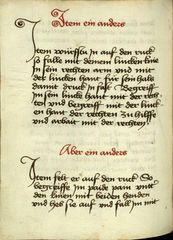 Item ein anders
Item würffstu jn auf den ruck
so falle mit deinem lincken knie
jn sein rechten arm und mit
der lincken hant für sein hals
damit druck jn fast Begreiff
jn sein lincke hant mit der rech
ten und begreiff mit der linck
en hant der rechten zu hilffe
und arbait mit der rechten
Aber ein anders
Item felt er auf den ruck So
begreiffe jn paide pain unter
den knien mit beiden henden
und heb sie auf und fall jm mit